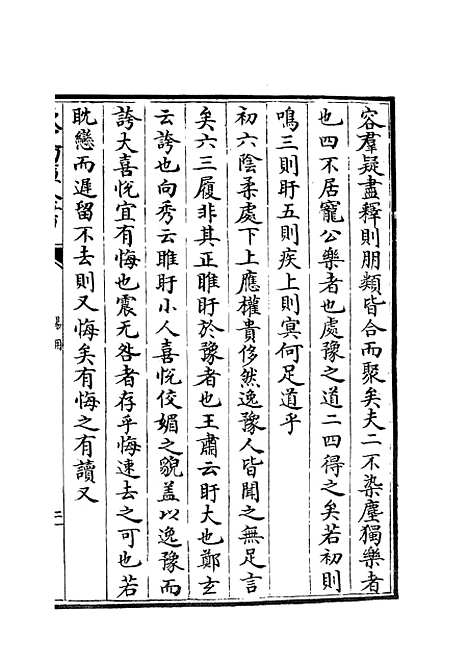 容羣疑盡釋則朋類皆合而聚矣夫二不染塵獨樂者
也四不居寵公樂者也處豫之道二四得之矣若初則
鳴三則盱五則疾上則冥何足道乎
初六陰柔處下上應權貴侈然逸豫人皆聞之無足言
矣六三履非其正睢盱於豫者也王肅云盱大也鄭玄
云誇也向秀云睢盱小人喜悅佼媚之貌蓋以逸豫而
誇大喜悅宜有悔也震无咎者存乎悔速去之可也若
耽戀而遲留不去則又悔矣有悔之有讀又
易用